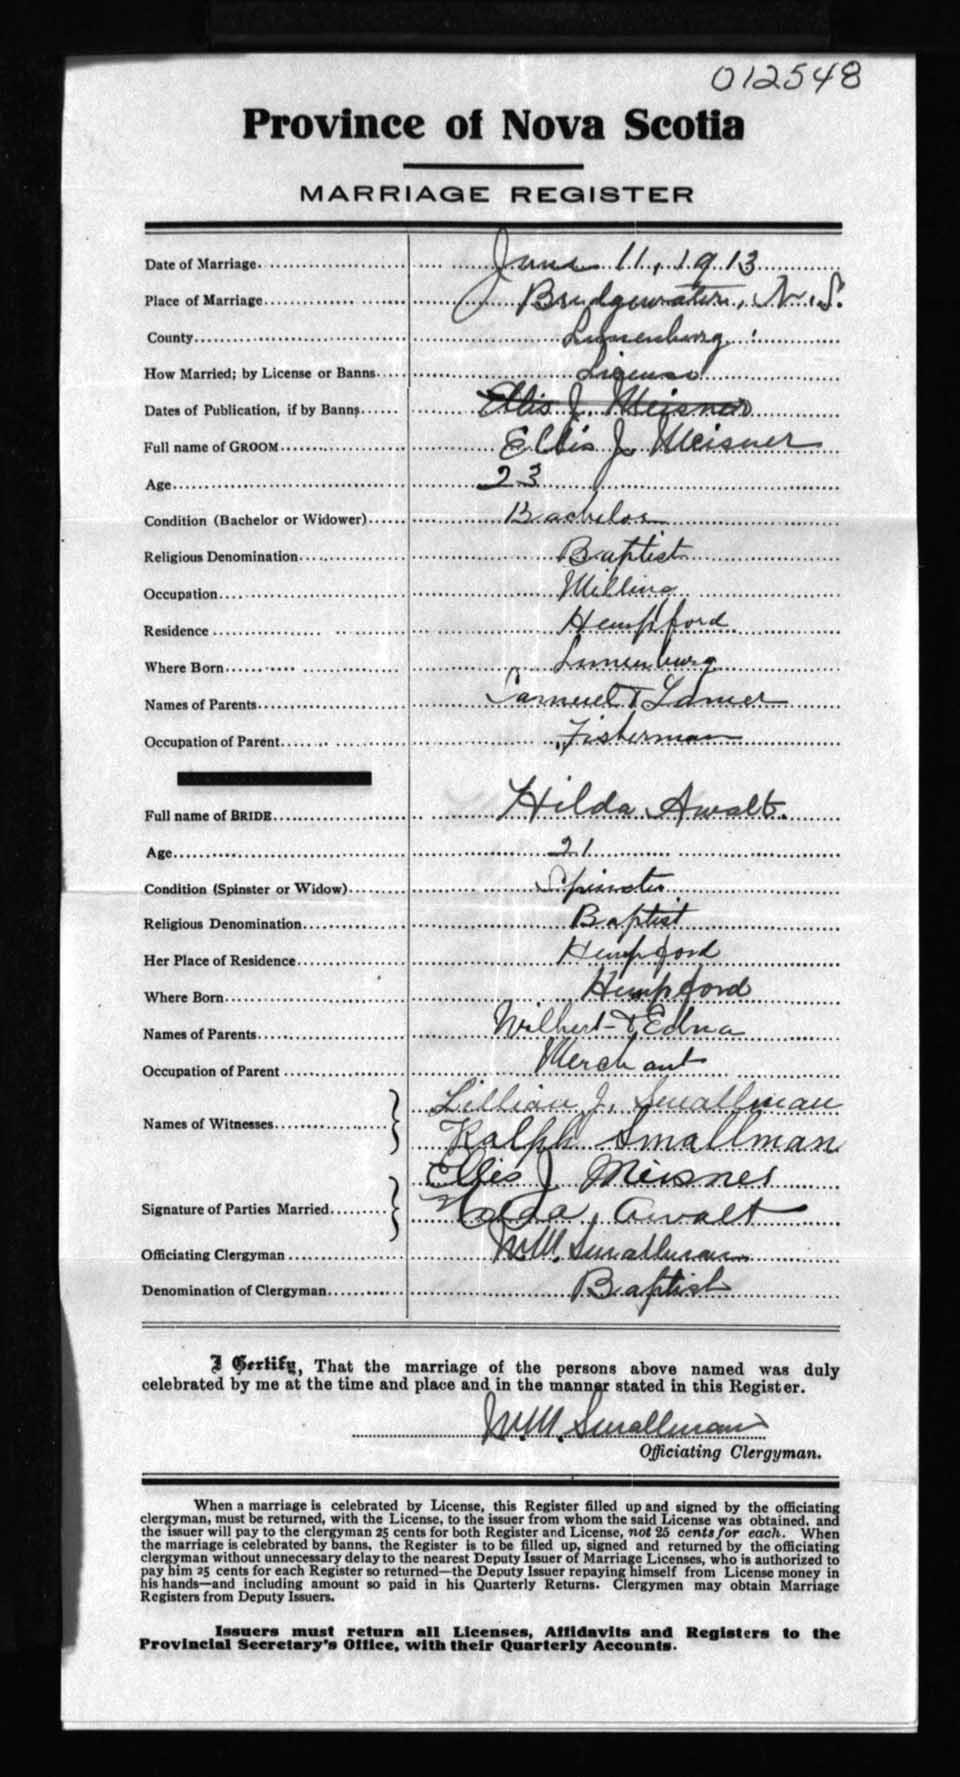 012548
Province of Nova Scotia
MARRIAGE REGISTER
Date of Marriage. June 11, 1913
Place of Marriage Bridgewater, N.S.
County Lunenburg
How Married; by License or Banns License
Dates of Publication, if by Banns Ellis J. Meisner
Full name of GROOM Ellis J. Meisner
Age 23
Condition (Bachelor or Widower) Bachelor
Religious Denomination Baptist
Occupation Milling
Residence Hempford
Where Born Lunenburg
Names of Parents Samuel &
Occupation of Parent Fisherman
Full name of BRIDE Hilda Awalt.
Age 21
Condition (Spinster or Widow) Spinster
Religious Denomination Baptist
Her Place of Residence Hempford
Where Born Hempford
Names of Parents Wilbert & Edna
Occupation of Parent Merchant
Lillian J. Smallman
Names of Witnesses
Ralph Smallman
Ellis J Meisner
Signature of Parties Married Hilda Awalt
Officiating Clergyman W.M. Smallman
Denomination of Clergyman Baptist
I Certify, That the marriage of the persons above named was duly
celebrated by me at the time and place and in the manner stated in this Register.
W.M. Smallman
Officiating Clergyman.
When a marriage is celebrated by License, this Register filled up and signed by the officiating
clergyman, must be returned, with the License, to the issuer from whom the said License was obtained, and
the issuer will pay to the clergyman 25 cents for both Register and License, not 25 cents for each. When
the marriage is celebrated by banns, the Register is to be filled up, signed and returned by the officiating
clergyman without unnecessary delay to the nearest Deputy Issuer of Marriage Licenses, who is authorized to
pay him 25 cents for each Register so returned—the Deputy Issuer repaying himself from License money in
his hands—and including amount so paid in his Quarterly Returns. Clergymen may obtain Marriage
Registers from Deputy Issuers.
Issuers must return all Licenses, Affidavits and Registers to the
Provincial Secretary's Office, with their Quarterly Accounts.